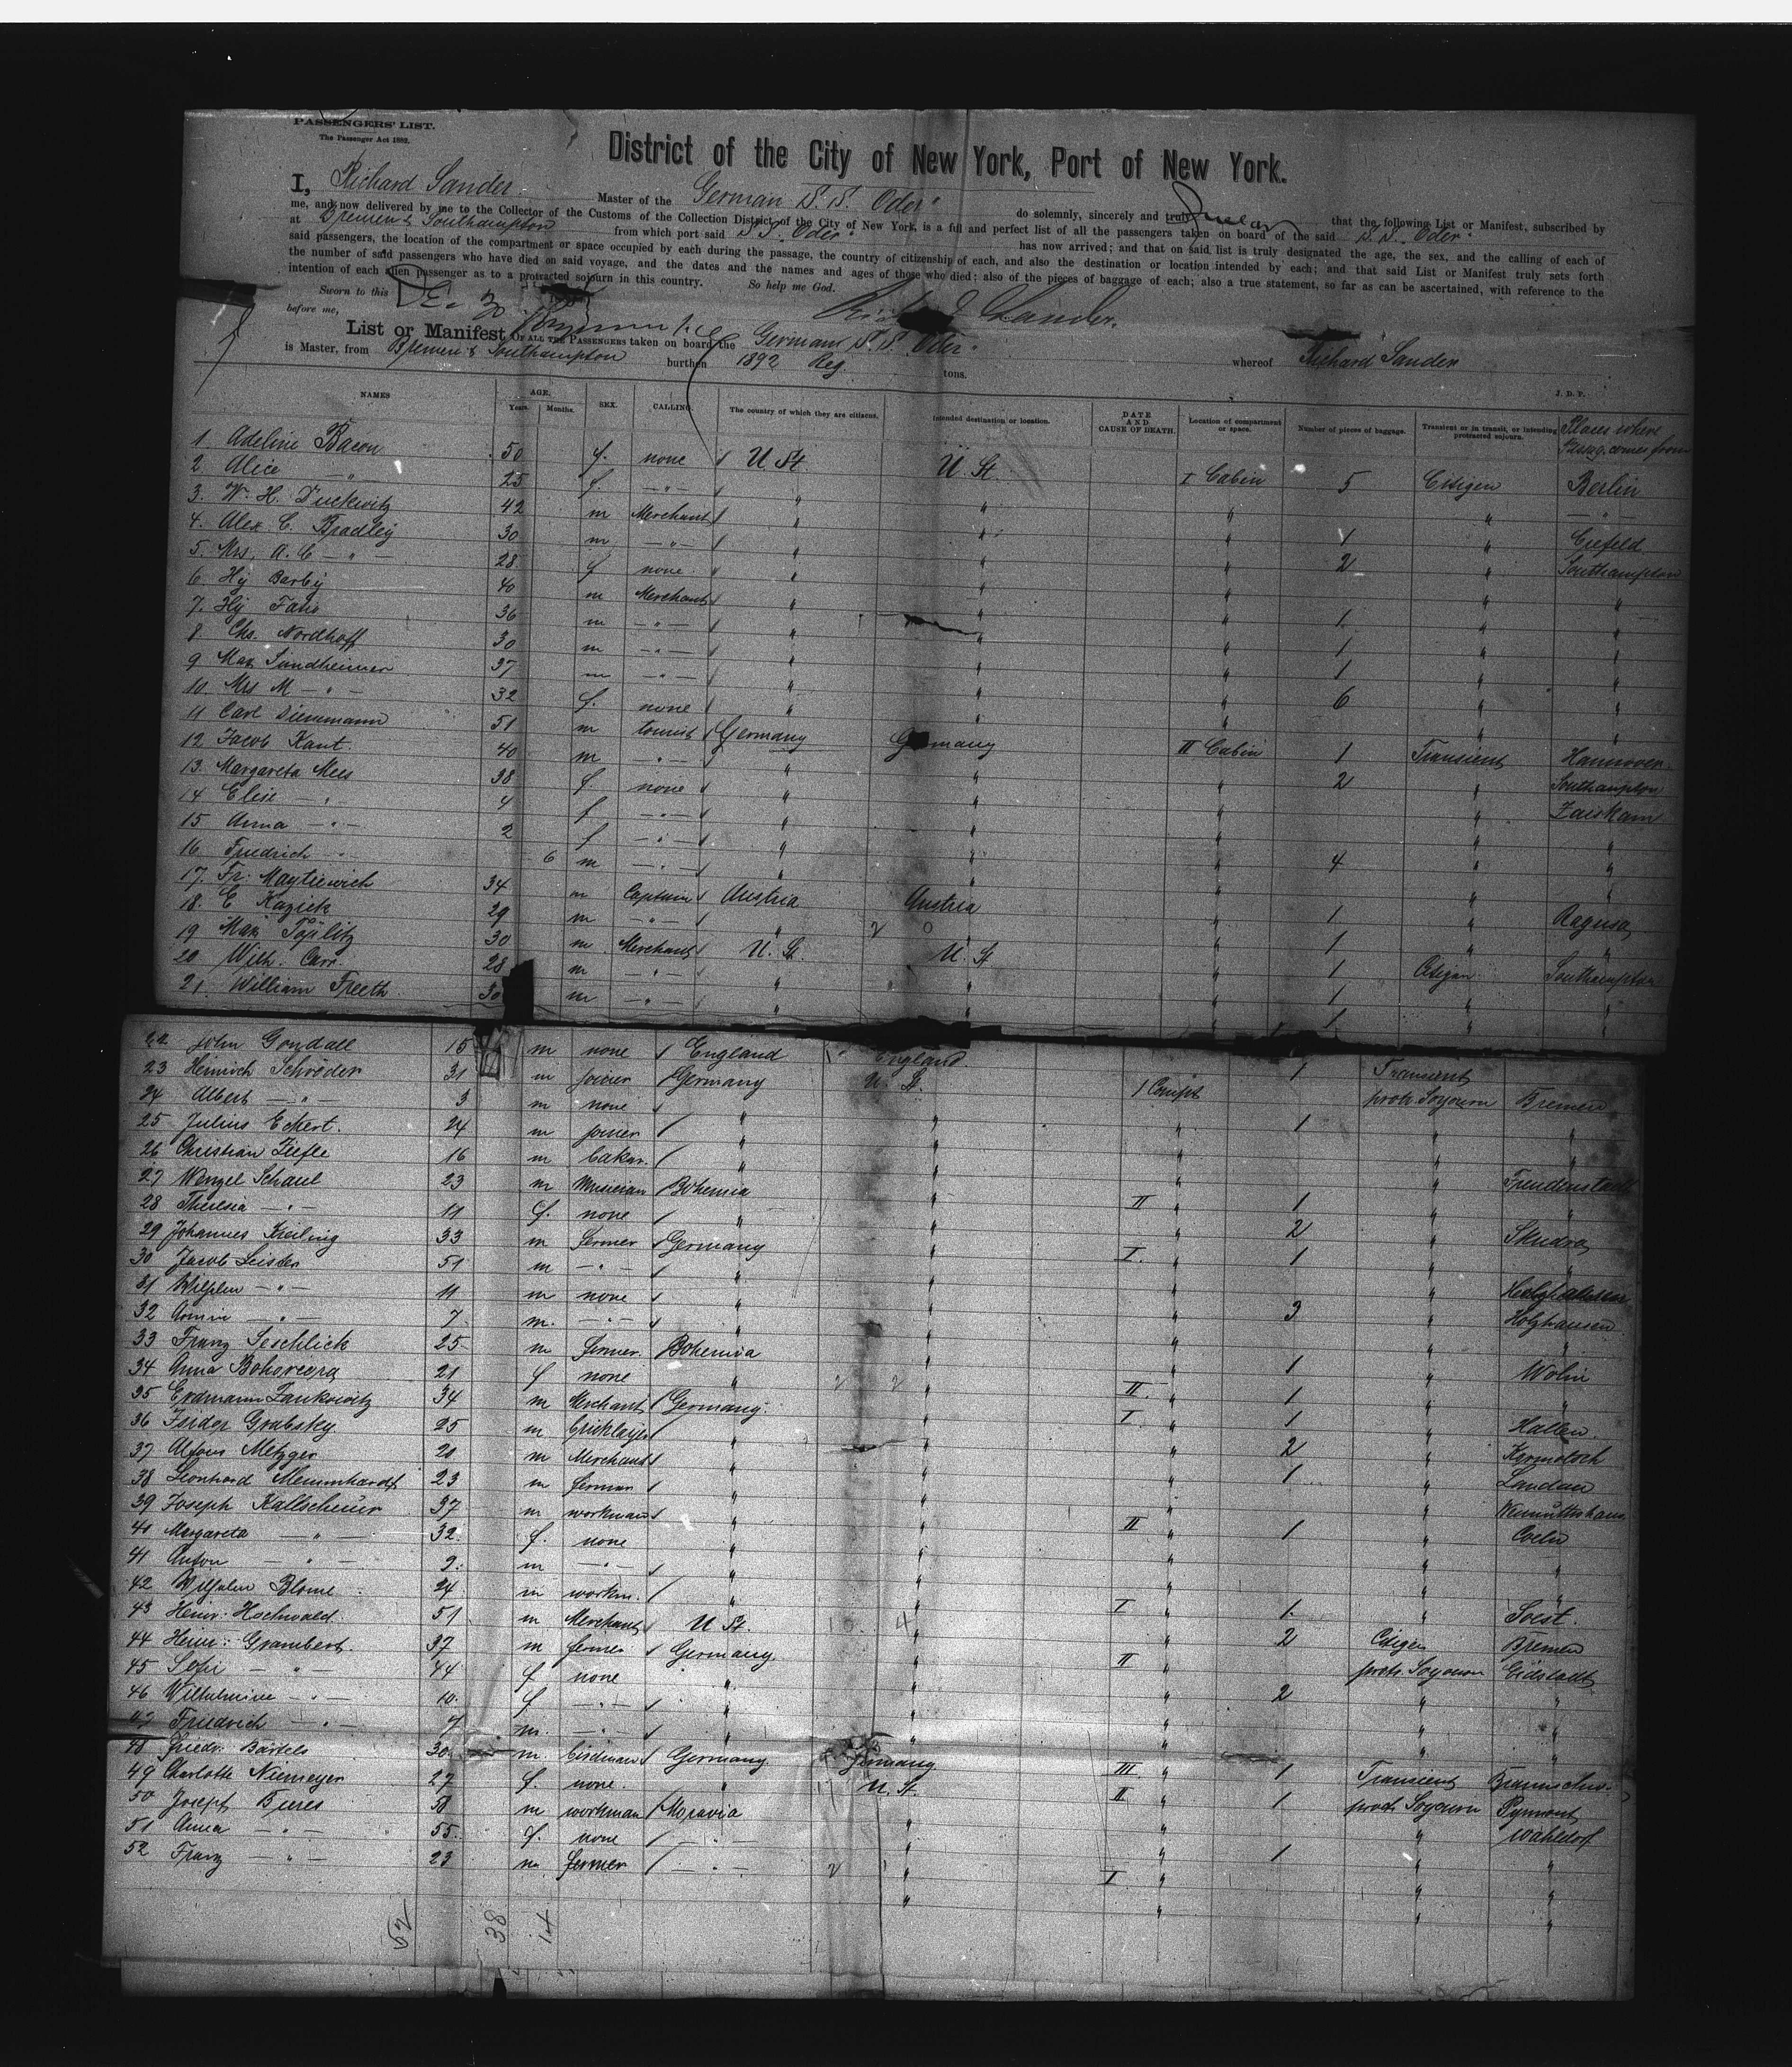 PASSENGERS' LIST.
The Passenger Act 1882.
District of the City of New York, Port of New York.
I, Richard Sander Master of the German S. S. "Oder" do solemnly, sincerely and truly that the following List or Manifest, subscribed by
me, and now delivered by me to the Collector of the Customs of the Collection District of the City of New York, is a full and perfect list of all the passengers taken on board of the said S. S. "Oder"
at Bremen & Southampton from which port said S. S. "Oder" has now arrived; and that on said list is truly designated the age, the sex, and the calling of each of
said passengers, the location of the compartment or space occupied by each during the passage, the country of citizenship of each, and also the destination or location intended by each; and that said List or Manifest truly sets forth
the number of said passengers who have died on said voyage, and the dates and the names and ages of those who died; also of the pieces of baggage of each; also a true statement, so far as can be ascertained, with reference to the
intention of each alien passenger as to a protracted sojourn in this country. So help me God.
Sworn to this
before me,
List or Manifest OF ALL THE PASSENGERS taken on board the German S. S. "Oder" whereof Richard Sander
is Master, from Bremen & Southampton burthen 1892 Reg tons.
J. D. P.
NAMES AGE. Years. Months. SEX. CALLING. The country of which they are citizens. Intended destination or location. DATE AND CAUSE OF DEATH. Location of compartment or space. Number of pieces of baggage. Transient or in transit, or intending protracted sojourn. Places where Passag. comes from
1 Adeline Bacon 50 f. none U St U. St. I Cabin 5 Citizen Berlin
2 Alice — " 25 f — " — " " " " — " —
3. W. H. Duckwitz 42 m Merchant " " " 1 " Crefeld
4. Alex C. Bradley 30 m — " — " " " 2 " Southampton
5. Mrs. A. C — " — 28 f none " " " " "
6 Hy Barby 40 m Merchant " " " 1 " "
7. Hy 36 m — " — " " " 1 " "
8 Chs. Nordhoff 30 m — " — " " " 1 " "
9 Max Sundheimer 37 m — " — " " " 6 " "
10. Mrs M — " — 32 f. none " " " " "
11 Carl 51 m tourist Germany Germany II Cabin 1 Transient Hannover
12 Jacob Kant. 40 m — " — " " " 2 " Southampton
13. Margareta Mees 38 f. none " " " " Zaiskam
14 Elise — " — 4 f — " — " " " " "
15 Anna — " — 2 f — " — " " " 4 " "
16 Friedrich — " 6 m — " — " " " " "
17. Fr. 34 m Captain Austria Austria " 1 " Ragusa
18. E. 29 m — " — " " " 1 " "
19 Max Töplitz 30 m Merchant U. St. U. St " 1 Citizen Southampton
20 Wilh. Carr. 28 m — " — " " " 1 " "
21. William Freeth 30 m — " — " " " 1 " "
22 John Gondall 15 m none England England 1 Transient
23 Heinrich Schröder 31 m joiner Germany U. St. 1 Compt protr. Sojourn Bremen
24 Albert — " — 3 m none " " " 1 " "
25 Julius Eckert. 24 m joiner " " " " "
26 Christian Ziefle 16 m baker. " " " " Freudenstadt
27 Wenzel Schaul 23 m Musician Bohemia " II " 1 " "
28 Theresia — " — 11 f. none " " " 2 " Skudra
29 Johannes Kreiling 33 m fermer Germany " I. " 1 " "
30 Jacob Leister 51 m — " — " " " "
31 Wilhelm — " — 11 m none " " " 3 " Holzhausen
32 — " — 7 m. — " — " " " " "
33 Franz 25 m fermer. Bohemia " " 1 " Wolin
34 Anna 21 f none " " II. " 1 " "
35 Erdmann 34 m Merchant Germany. " I " 1 " Hallen
36 Isidor Grabsky 25 m bricklayer " " " 2 "
37 Alfons Metzger 20 m Merchant " " " 1 " Landau
38 Leonhard 23 m fermer " " "
39 Joseph Kallscheuer 37 m workman " " II " 1 " Coeln
40 Margareta — " — 32. f. none " " " " "
41 Anton — " — 9. m — " — " " " " "
42 Wilhelm Blome 24 m workm. " " I " 1. " Soest.
43 Heinr: Hochwald. 51 m Merchant U St. " " 2 Citizen Bremen
44 Heinr: Grambert. 37 m fermer Germany " II " protr. Sojourn
45 Sofie — " — 44 f none " " " 2 " "
46 Wilhelmine — " — 10. f — " — " " " " "
47 Friedrich — " — 7 m. — " — " " " " "
48 Friedr: Bartels 30 m Germany Germany III " 1 Transient Braunschw.
49 Charlotte Niemeyer 27 f. none. " U. St. II " 1 protr. Sojourn Pyrmont
50 Joseph Beres 58 m workman Moravia " " " Wahldorf
51 Anna — " — 55. f. none — " — " " 1 " "
52 Franz — " — 23 m fermer — " — " I " " "
52 38 14